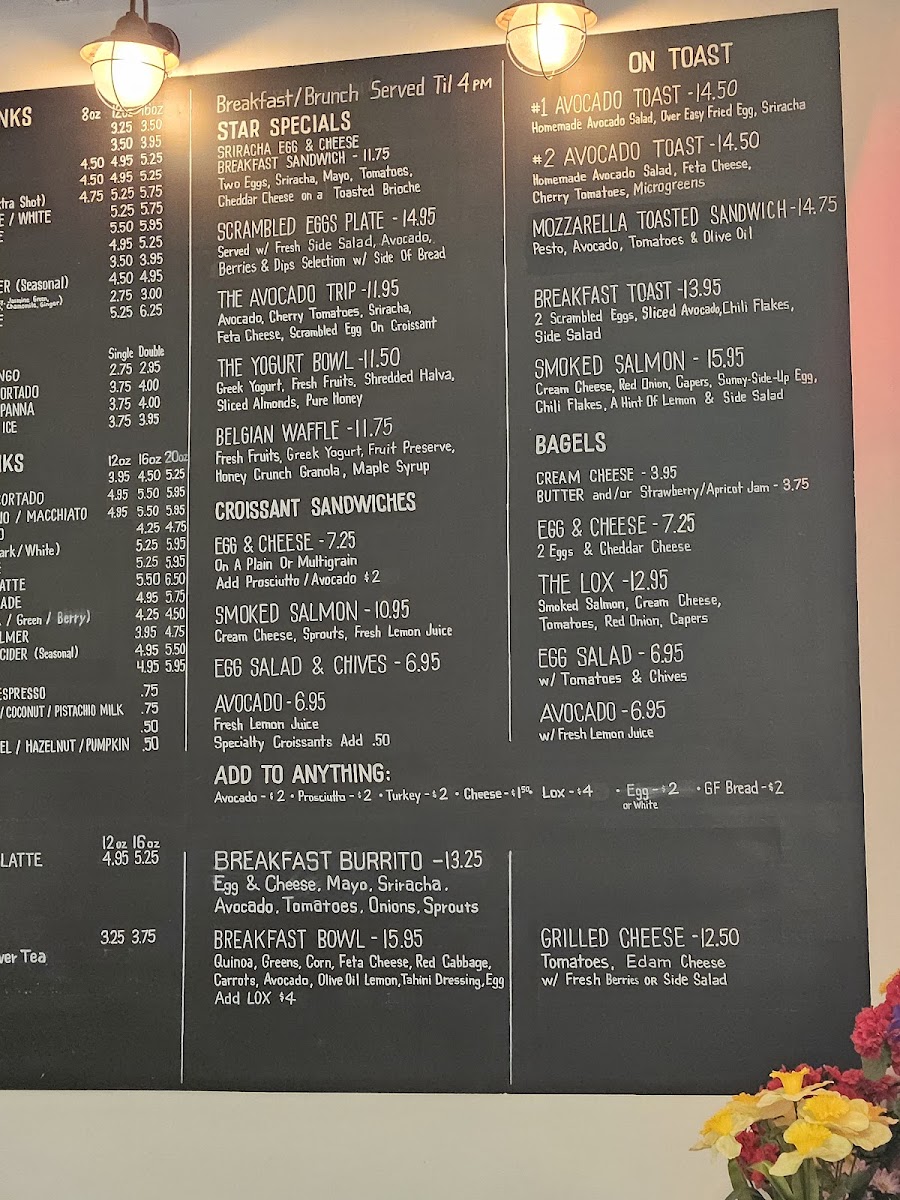 NKS 8oz 12oz 16oz
3.25 3.50
3.50 3.95
4.50 4.95 5.25
4.50 4.95 5.25
tra Shot) 4.75 5.25 5.75
E / WHITE 5.25 5.75
E 5.50 5.95
4.95 5.25
3.50 3.95
ER (Seasonal) 4.50 4.95
Jasmine Green, 2.75 3.00
Chamomile, Ginger)
E 5.25 6.25
Single Double
NGO 2.75 2.95
ORTADO 3.75 4.00
PANNA 3.75 4.00
ICE 3.75 3.95
NKS 12oz 16oz 20oz
3.95 4.50 5.25
CORTADO 4.95 5.50 5.95
NO / MACCHIATO 4.95 5.50 5.95
O 4.25 4.75
ark/White) 5.25 5.95
E 5.25 5.95
ATTE 5.50 6.50
ADE 4.95 5.75
/ Green / Berry) 4.25 4.50
LMER 3.95 4.75
CIDER (Seasonal) 4.95 5.50
4.95 5.95
ESPRESSO .75
/ COCONUT / PISTACHIO MILK .75
.50
EL / HAZELNUT / PUMPKIN .50
12oz 16oz
LATTE 4.95 5.25
3.25 3.75
wer Tea
Breakfast/Brunch Served Til 4PM
STAR SPECIALS
SRIRACHA EGG & CHEESE
BREAKFAST SANDWICH - 11.75
Two Eggs, Sriracha, Mayo, Tomatoes,
Cheddar Cheese on a Toasted Brioche
SCRAMBLED EGGS PLATE - 14.95
Served w/ Fresh Side Salad, Avocado,
Berries & Dips Selection w/ Side Of Bread
THE AVOCADO TRIP - 11.95
Avocado, Cherry Tomatoes, Sriracha,
Feta Cheese, Scrambled Egg On Croissant
THE YOGURT BOWL - 11.50
Greek Yogurt, Fresh Fruits, Shredded Halva,
Sliced Almonds, Pure Honey
BELGIAN WAFFLE - 11.75
Fresh Fruits, Greek Yogurt, Fruit Preserve,
Honey Crunch Granola, Maple Syrup
CROISSANT SANDWICHES
EGG & CHEESE - 7.25
On A Plain Or Multigrain
Add Prosciutto / Avocado $2
SMOKED SALMON - 10.95
Cream Cheese, Sprouts, Fresh Lemon Juice
EGG SALAD & CHIVES - 6.95
AVOCADO - 6.95
Fresh Lemon Juice
Specialty Croissants Add .50
ON TOAST
#1 AVOCADO TOAST - 14.50
Homemade Avocado Salad, Over Easy Fried Egg, Sriracha
#2 AVOCADO TOAST - 14.50
Homemade Avocado Salad, Feta Cheese,
Cherry Tomatoes, Microgreens
MOZZARELLA TOASTED SANDWICH - 14.75
Pesto, Avocado, Tomatoes & Olive Oil
BREAKFAST TOAST - 13.95
2 Scrambled Eggs, Sliced Avocado, Chili Flakes,
Side Salad
SMOKED SALMON - 15.95
Cream Cheese, Red Onion, Capers, Sunny-Side-Up Egg,
Chili Flakes, A Hint Of Lemon & Side Salad
BAGELS
CREAM CHEESE - 3.95
BUTTER and/or Strawberry/Apricot Jam - 3.75
EGG & CHEESE - 7.25
2 Eggs & Cheddar Cheese
THE LOX - 12.95
Smoked Salmon, Cream Cheese,
Tomatoes, Red Onion, Capers
EGG SALAD - 6.95
w/ Tomatoes & Chives
AVOCADO - 6.95
w/ Fresh Lemon Juice
ADD TO ANYTHING:
Avocado - $2 • Prosciutto - $2 • Turkey - $2 • Cheese - $1.50 Lox - $4 • Egg - $2 • GF Bread - $2
or White
BREAKFAST BURRITO - 13.25
Egg & Cheese, Mayo, Sriracha,
Avocado, Tomatoes, Onions, Sprouts
BREAKFAST BOWL - 15.95
Quinoa, Greens, Corn, Feta Cheese, Red Cabbage,
Carrots, Avocado, Olive Oil Lemon, Tahini Dressing, Egg
Add LOX $4
GRILLED CHEESE - 12.50
Tomatoes, Edam Cheese
w/ Fresh Berries OR Side Salad